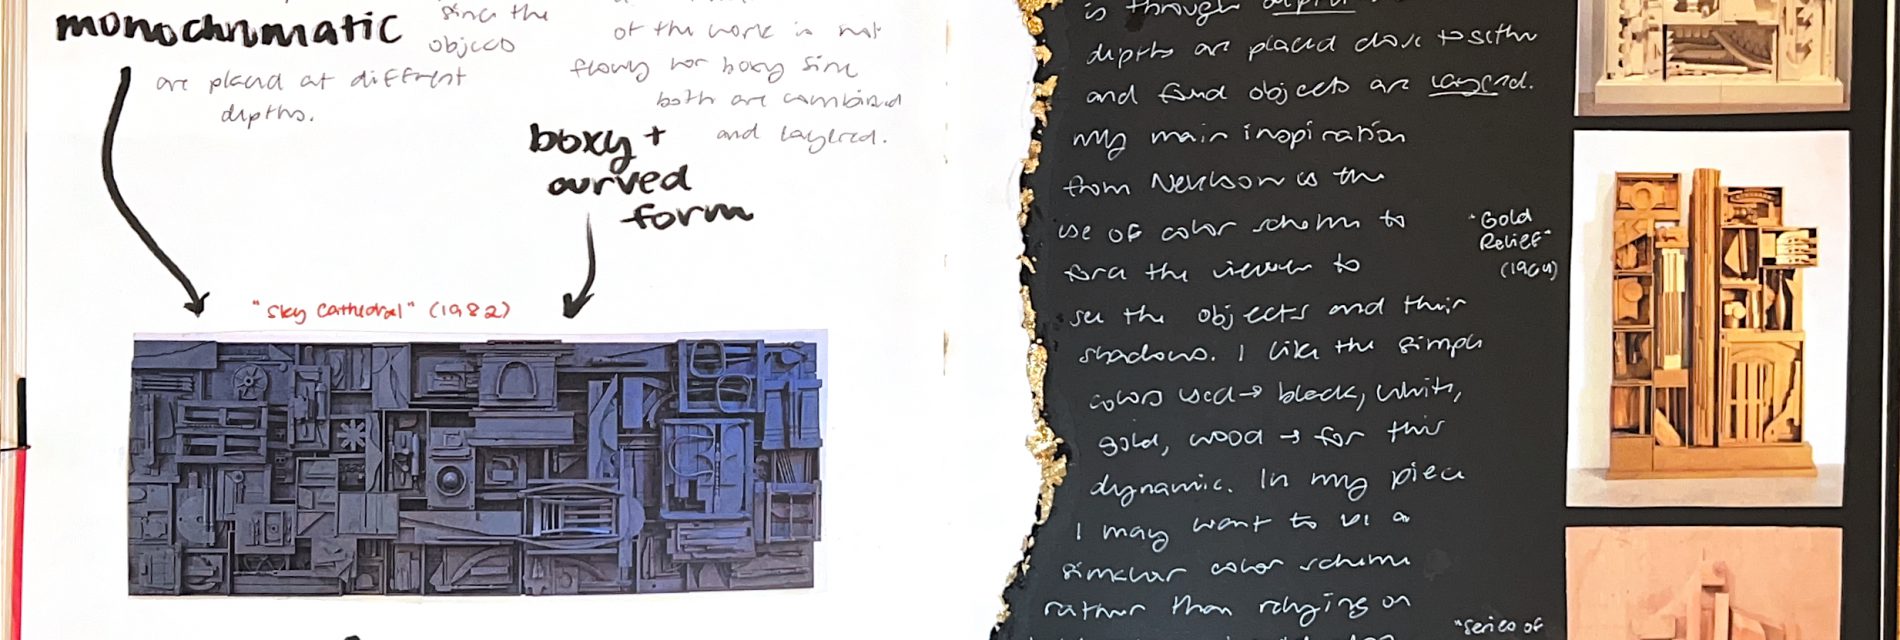 monochromatic
since the
objects
are placed at different
depths.
of the work is not
flowy nor boxy since
both are combined
and layered.
boxy +
curved
form
"Sky Cathedral" (1982)
is through
depths are placed close together
and found objects are layered.
my main inspiration
from Nevelson is the
use of color scheme to
force the viewer to
see the objects and their
shadows. I like the simple
colors used → black, white,
gold, wood → for this
dynamic. In my piece
I may want to use a
similar color scheme
rather than relying on
"Gold
Relief"
(1964)
"Series of